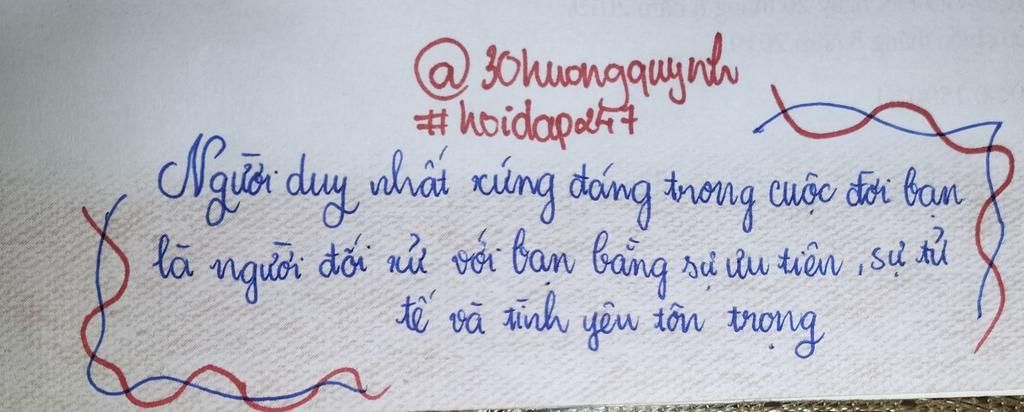 @30huongquynh
#hoidap247
Người duy nhất xứng đáng trong cuộc đời bạn
là người đối xử với bạn bằng sự ưu tiên, sự tử
tế và tình yêu tôn trọng